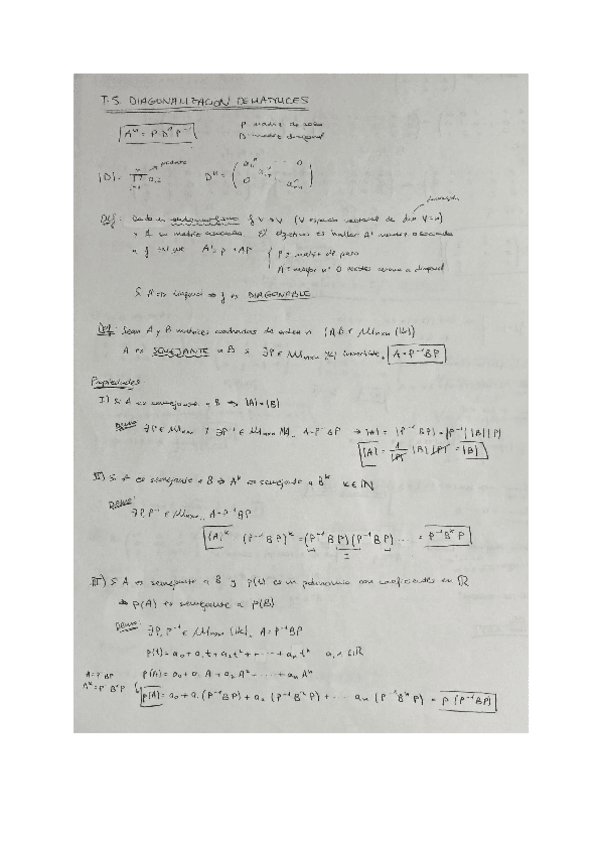 T.5. DIAGONALIZACIÓN DE MATRICES
A^n = P D^n P^-1
P matriz de paso
D matriz diagonal
producto
|D| = ∏ a_ii
D^n =
dimensión
Def: Dado un endomorfismo f V → V (V espacio vectorial de dim V = n)
y A su matriz asociada. El objetivo es hallar A' matriz asociada
a f tal que
P = matriz de paso
Si A' es diagonal ⇒ f es DIAGONABLE
Def: Sean A y B matrices cuadradas de orden n (A, B ∈ M_nxn (K))
A es SEMEJANTE a B si ∃P ∈ M_nxn (K) invertible, A = P^-1 B P
Propiedades
I) Si A es semejante a B ⇒ |A| = |B|
Demo: ∃P ∈ M_nxn y ∃P^-1 ∈ M_nxn A = P^-1 B P → |A| = |P^-1 B P| = |P^-1| |B| |P|
|A| = 1/|P| |B| |P| = |B|
II) Si A es semejante a B ⇒ A^k es semejante a B^k k ∈ ℕ
Demo:
∃P, P^-1 ∈ M_nxn, A = P^-1 B P
(P^-1 B P)^k = (P^-1 B P)(P^-1 B P) ... = P^-1 B^k P
III) Si A es semejante a B y p(t) es un polinomio con coeficientes en ℝ
⇒ p(A) es semejante a p(B)
Demo: ∃P, P^-1 ∈ M_nxn (K), A = P^-1 B P
p(t) = a_0 + a_1 t + a_2 t^2 + ... + a_k t^k a_i ∈ ℝ
A = P^-1 B P
p(A) = a_0 + a_1 A + a_2 A^2 + ... + a_k A^k
A^k = P^-1 B^k P
p(A) = a_0 + a_1 (P^-1 B P) + a_2 (P^-1 B^2 P) + ... a_k (P^-1 B^k P) = p (P^-1 B P)